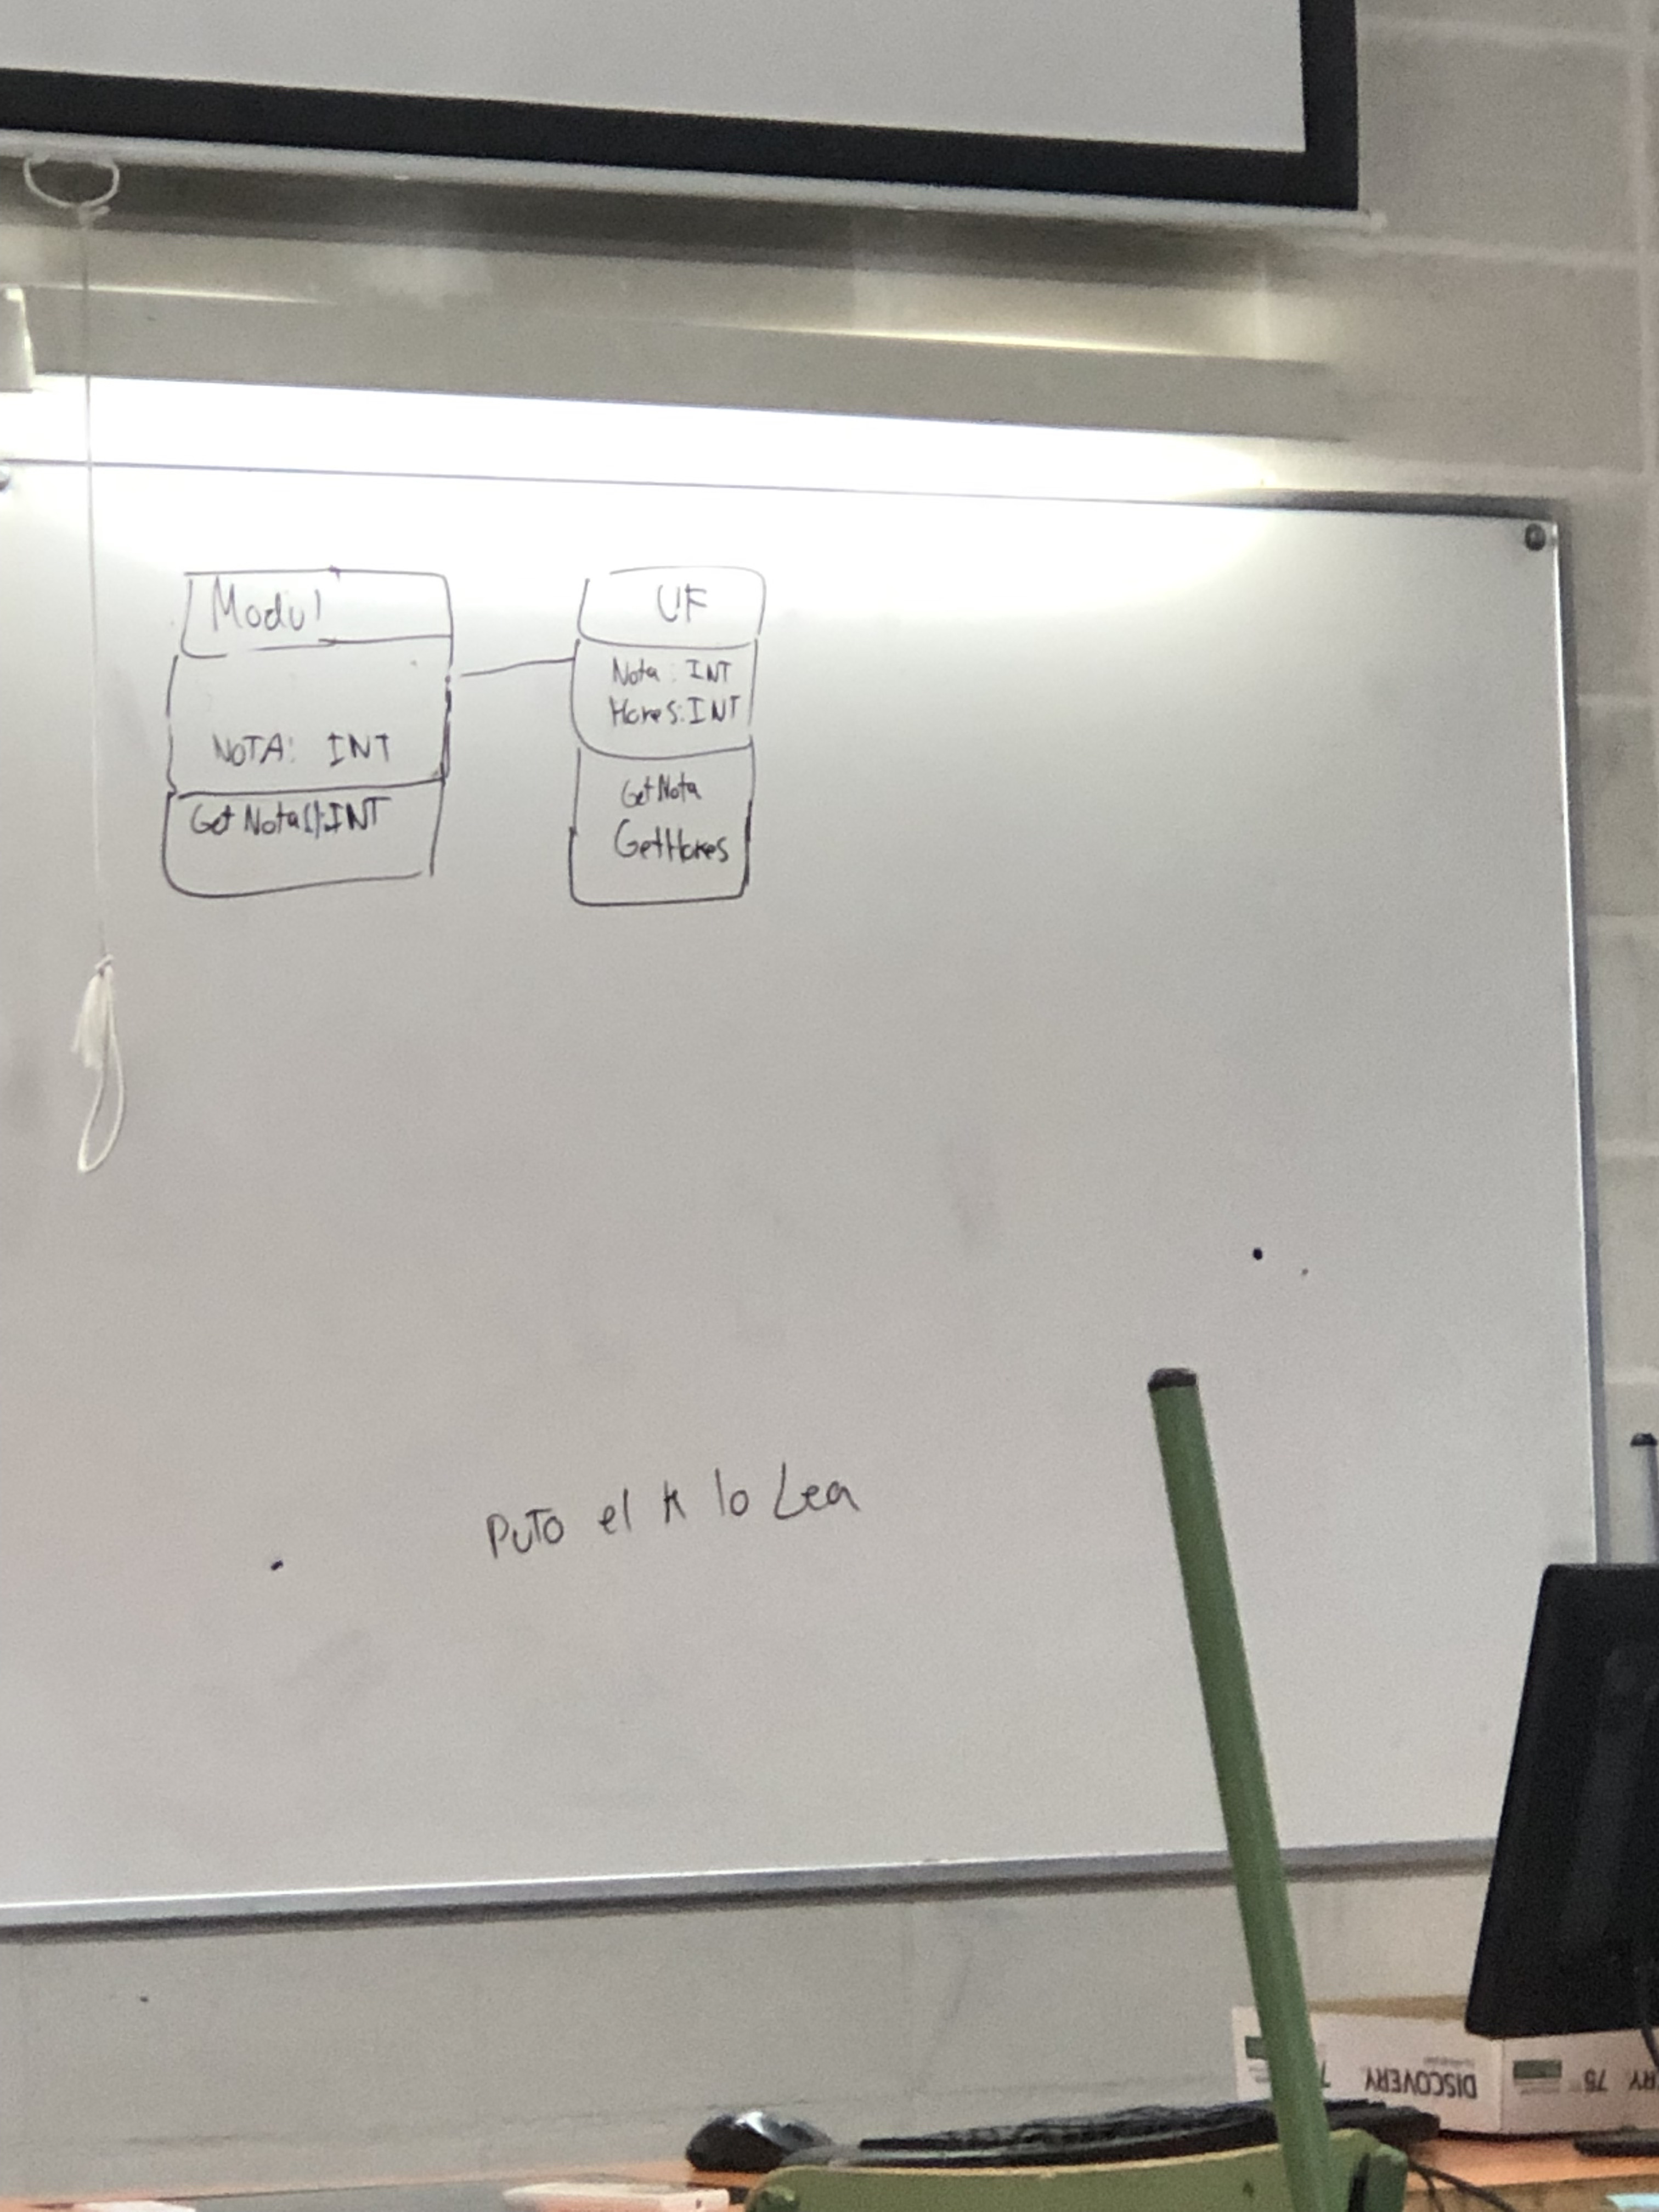 Modul
NOTA: INT
Get Nota():INT
UF
Nota: INT
Hores:INT
GetNota
GetHores
PUTO el k lo Lea
DISCOVERY
75